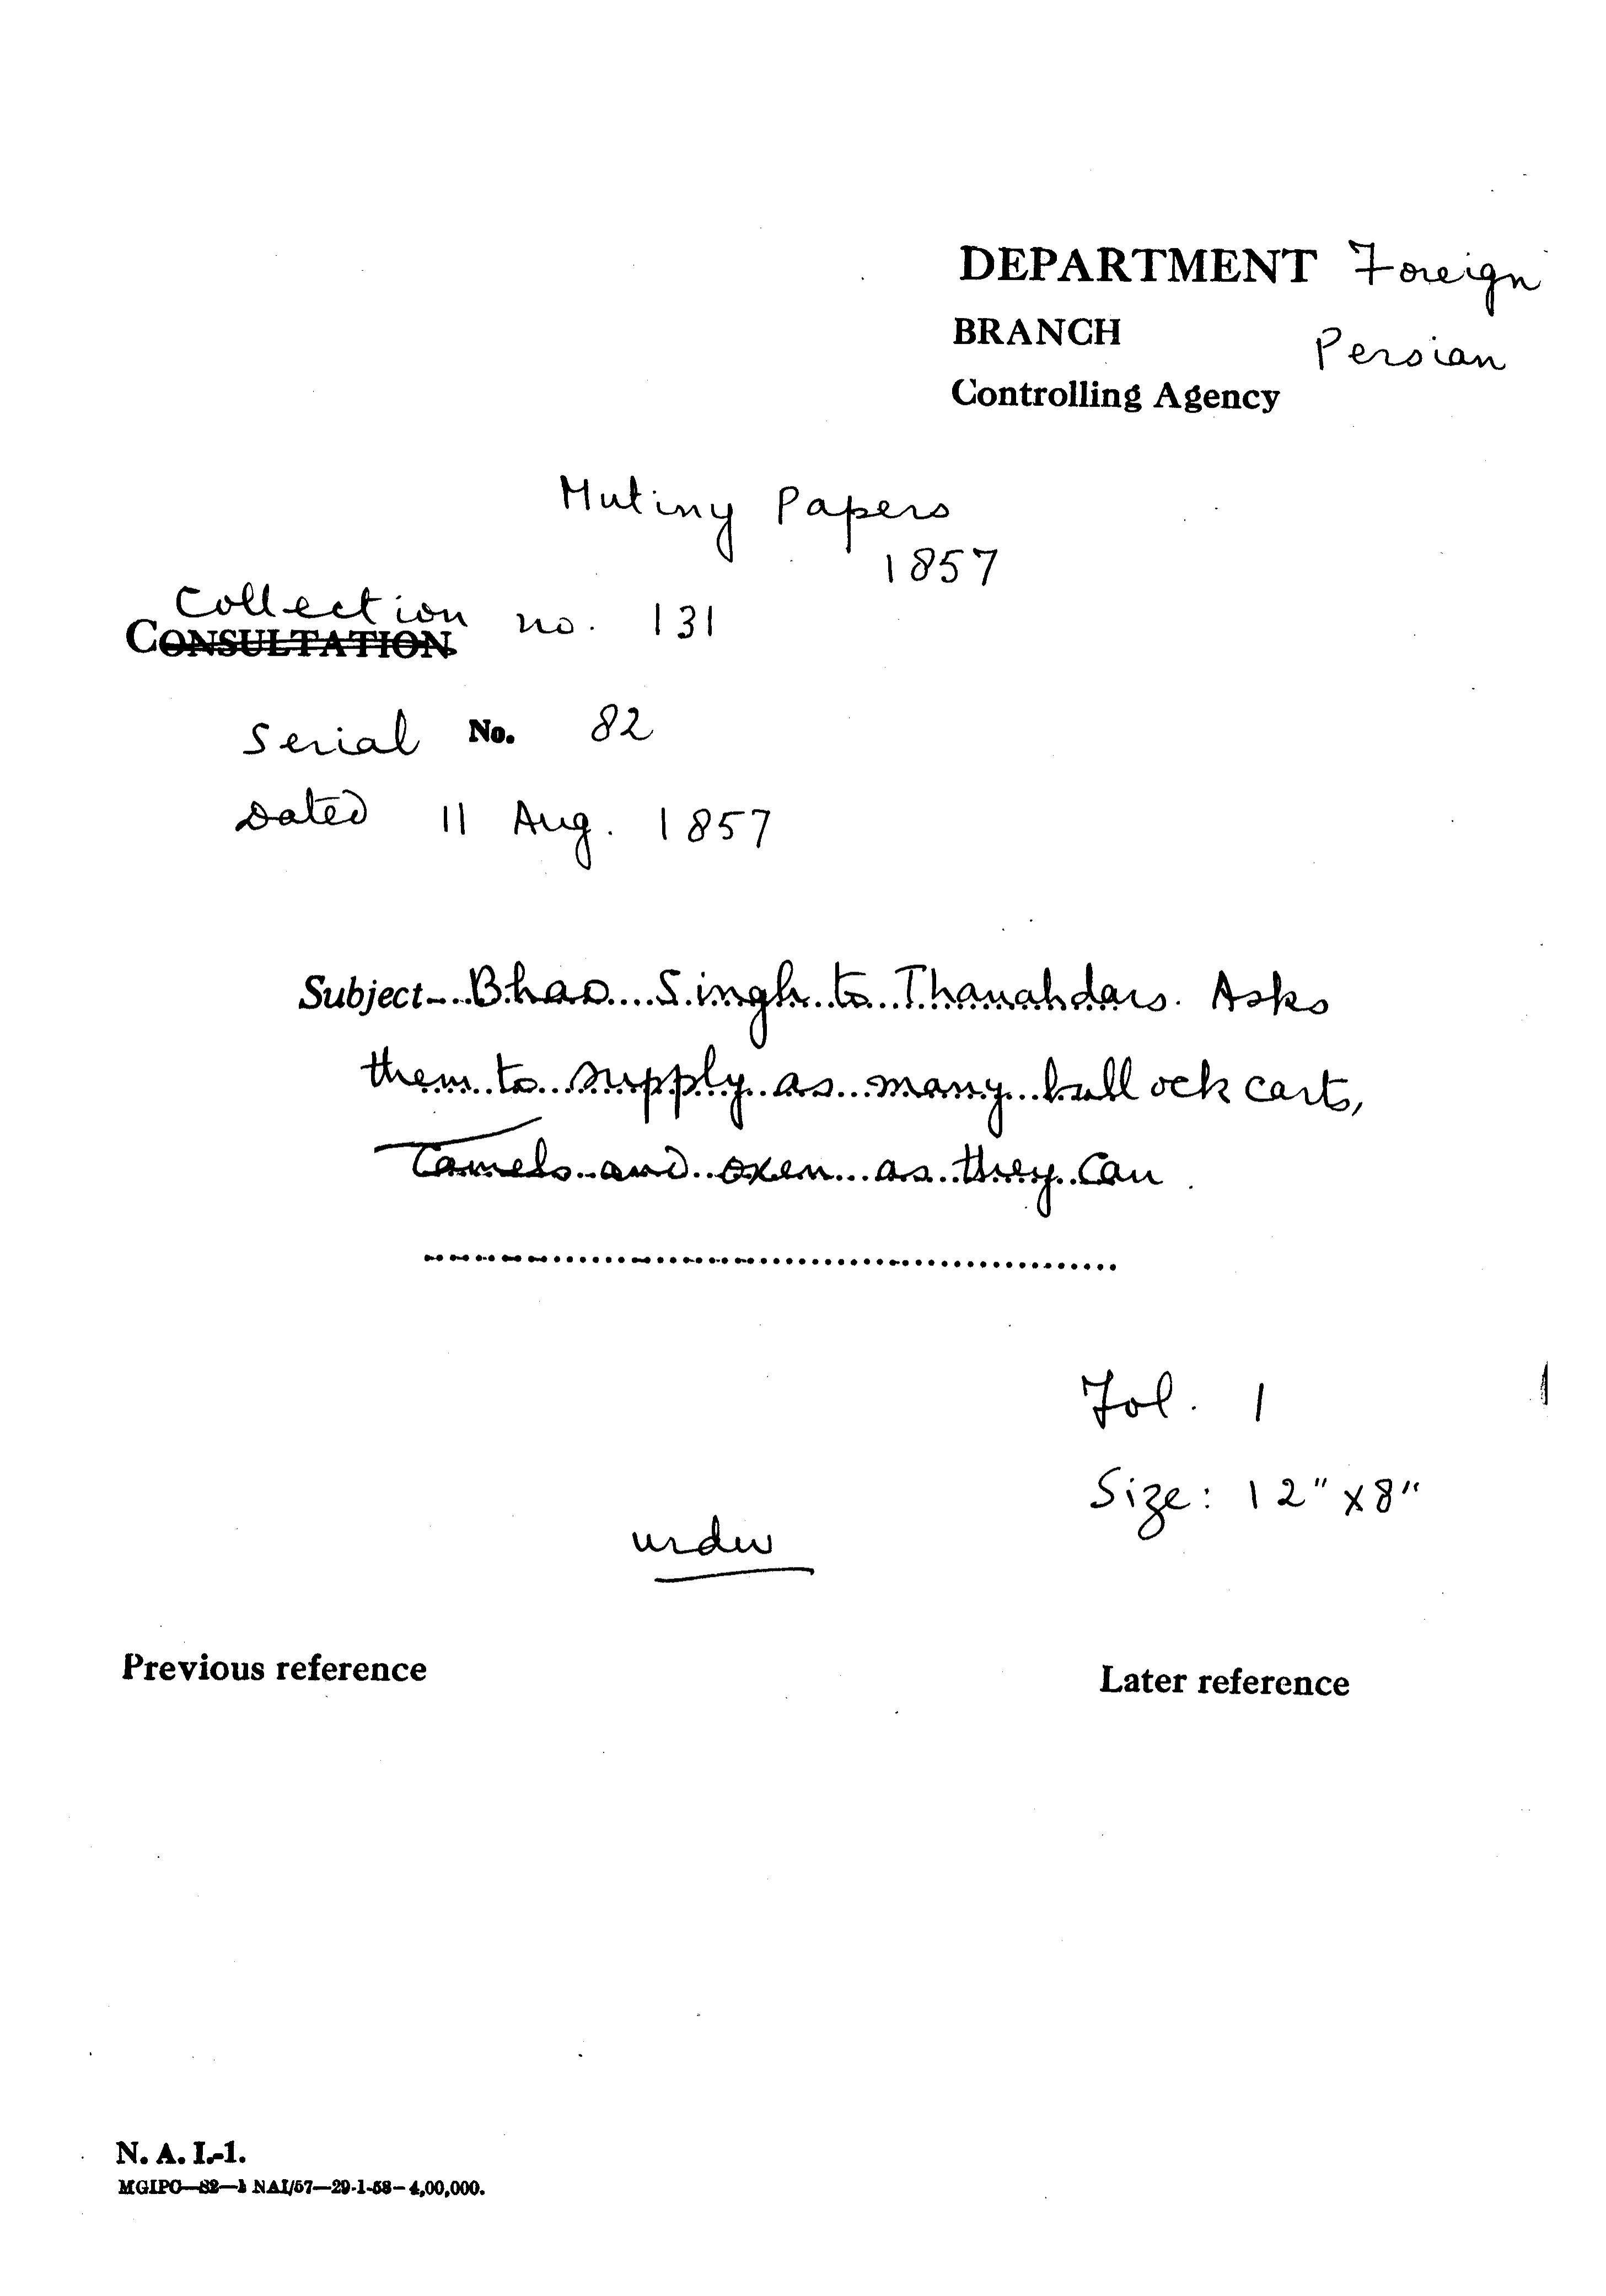 DEPARTMENT Foreign
BRANCH Persian
Controlling Agency
Mutiny Papers
1857
Collection no. 131
CONSULTATION
Serial No. 82
Dated 11 Aug. 1857
Subject-Bhao Singh to Thanahdars. Asks
them to supply as many bullock carts,
Camels and oxen as they can.
Fol. 1
Size: 12" x 8"
urdu
Previous reference
Later reference
N. A. I.-1.
MGIPC—S2—1 NAI/57—29-1-58—4,00,000.